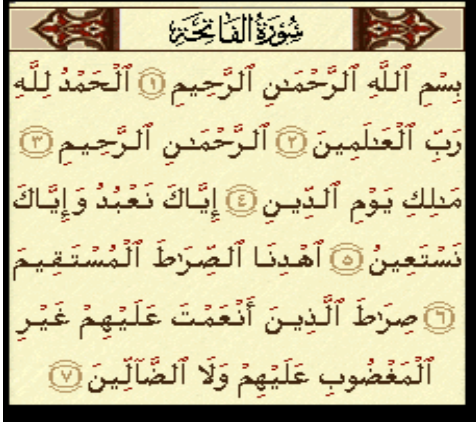 سُورَةُ الفَاتِحَةِ
بِسْمِ ٱللَّهِ ٱلرَّحْمَٰنِ ٱلرَّحِيمِ ١ ٱلْحَمْدُ لِلَّهِ
رَبِّ ٱلْعَٰلَمِينَ ٢ ٱلرَّحْمَٰنِ ٱلرَّحِيمِ ٣
مَٰلِكِ يَوْمِ ٱلدِّينِ ٤ إِيَّاكَ نَعْبُدُ وَإِيَّاكَ
نَسْتَعِينُ ٥ ٱهْدِنَا ٱلصِّرَٰطَ ٱلْمُسْتَقِيمَ
٦ صِرَٰطَ ٱلَّذِينَ أَنْعَمْتَ عَلَيْهِمْ غَيْرِ
ٱلْمَغْضُوبِ عَلَيْهِمْ وَلَا ٱلضَّآلِّينَ ٧